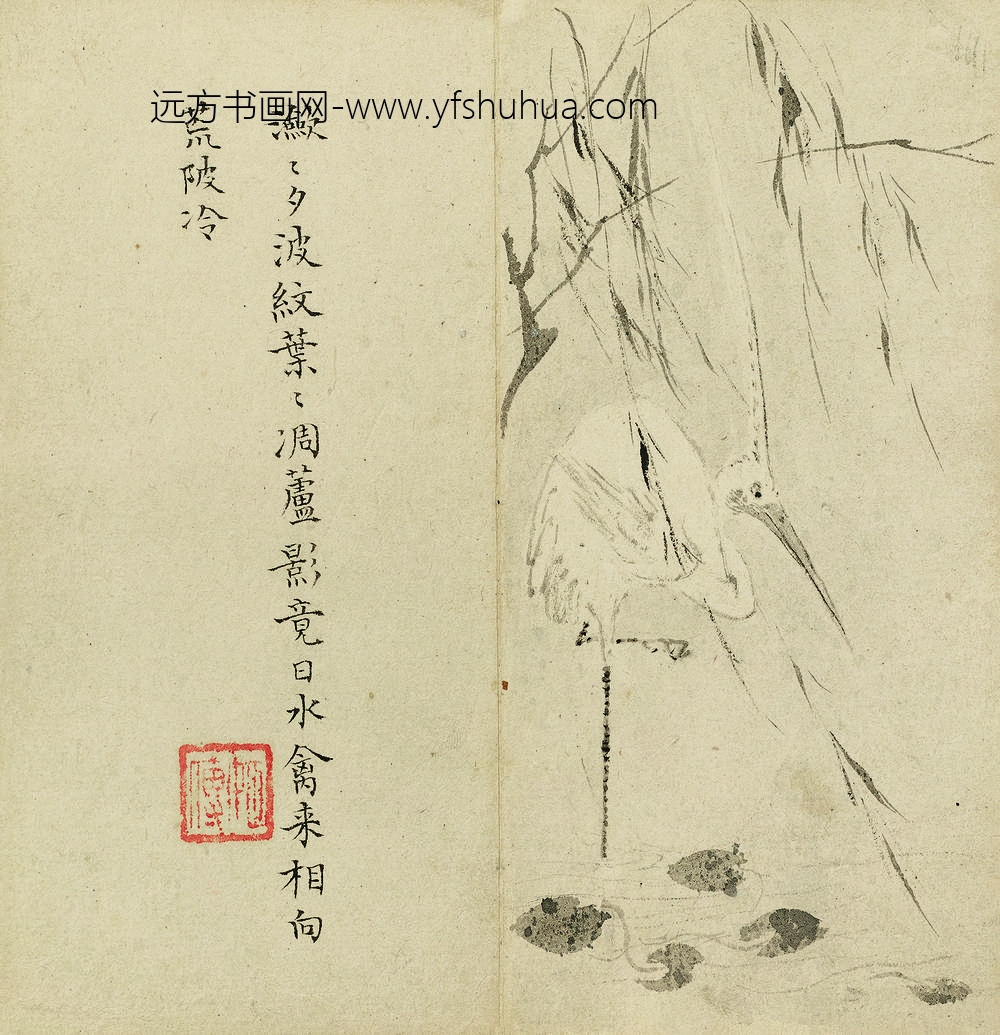 远方书画网-www.yfshuhua.com
〻夕波紋葉〻凋蘆影竟日水禽来相向
荒陂冷